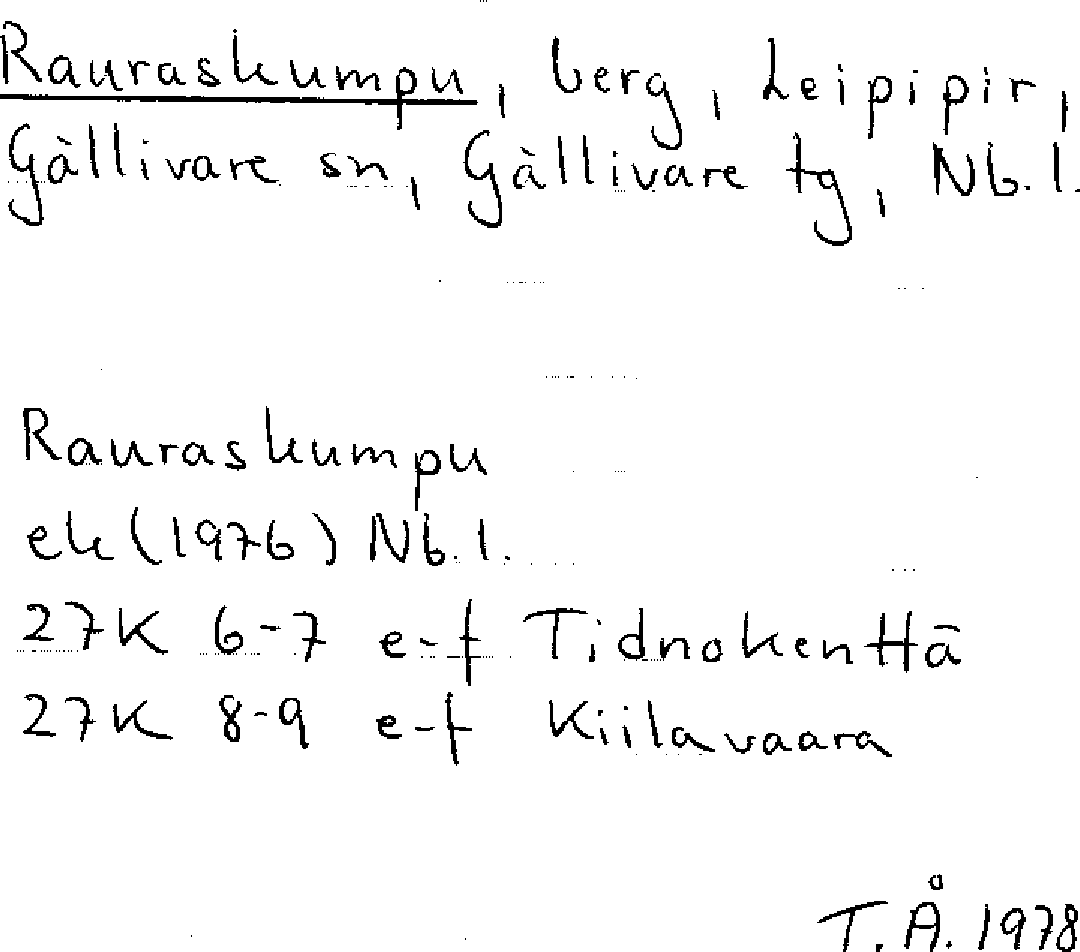 Rauraskumpu, berg, Leipipir,
Gällivare sn, Gällivare tg, Nb. l.
Rauraskumpu
ek (1976) Nb. l.
27K 6-7 e-f Tidnokenttä
27K 8-9 e-f Kiilavaara
T. Å. 1978